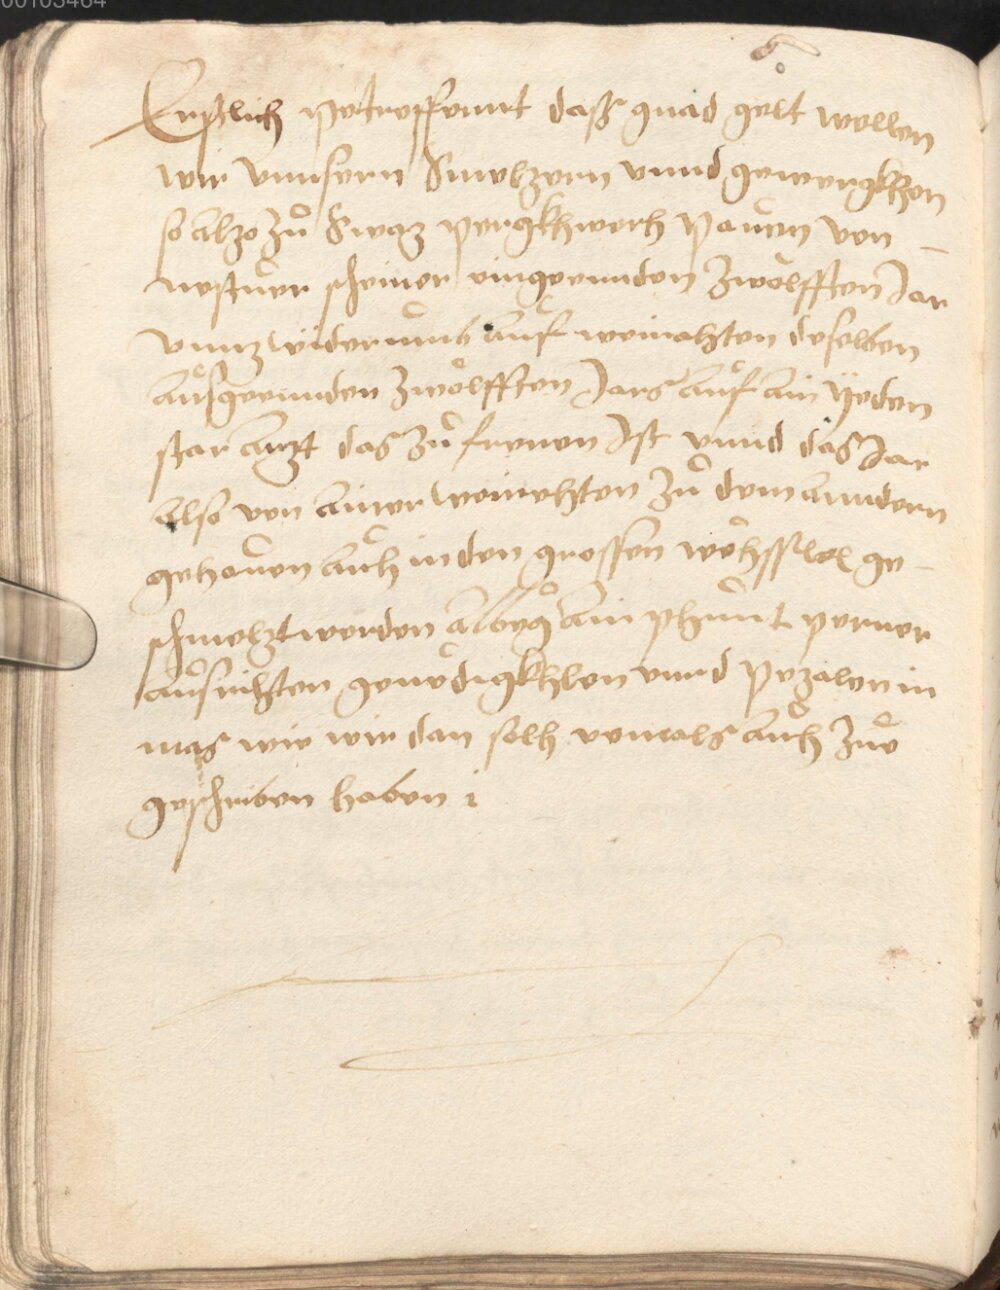 00103464
Erstlich petreffennt dass gnad gelt wellen
wir unnsern Smelzern unnd gewergkhen
so alzo zů Swaz pergkhwerch pauen von
schiner eingeennden zwölfften Jar
unnz widerumb auf weinahten deselben
ausgeennden zwölfften Jars auf ain yeden
star ärzt das zů frenen Ist unnd das Jar
also von ainer weinehten zů dem anndern
gehauen auch in den grossen wechssl ge-
schmelzt werden albeg ain phunt perner
ausrihten genedigkhlen unnd pezalen in
mas wie wir dan solh vormals auch zue
geschriben haben